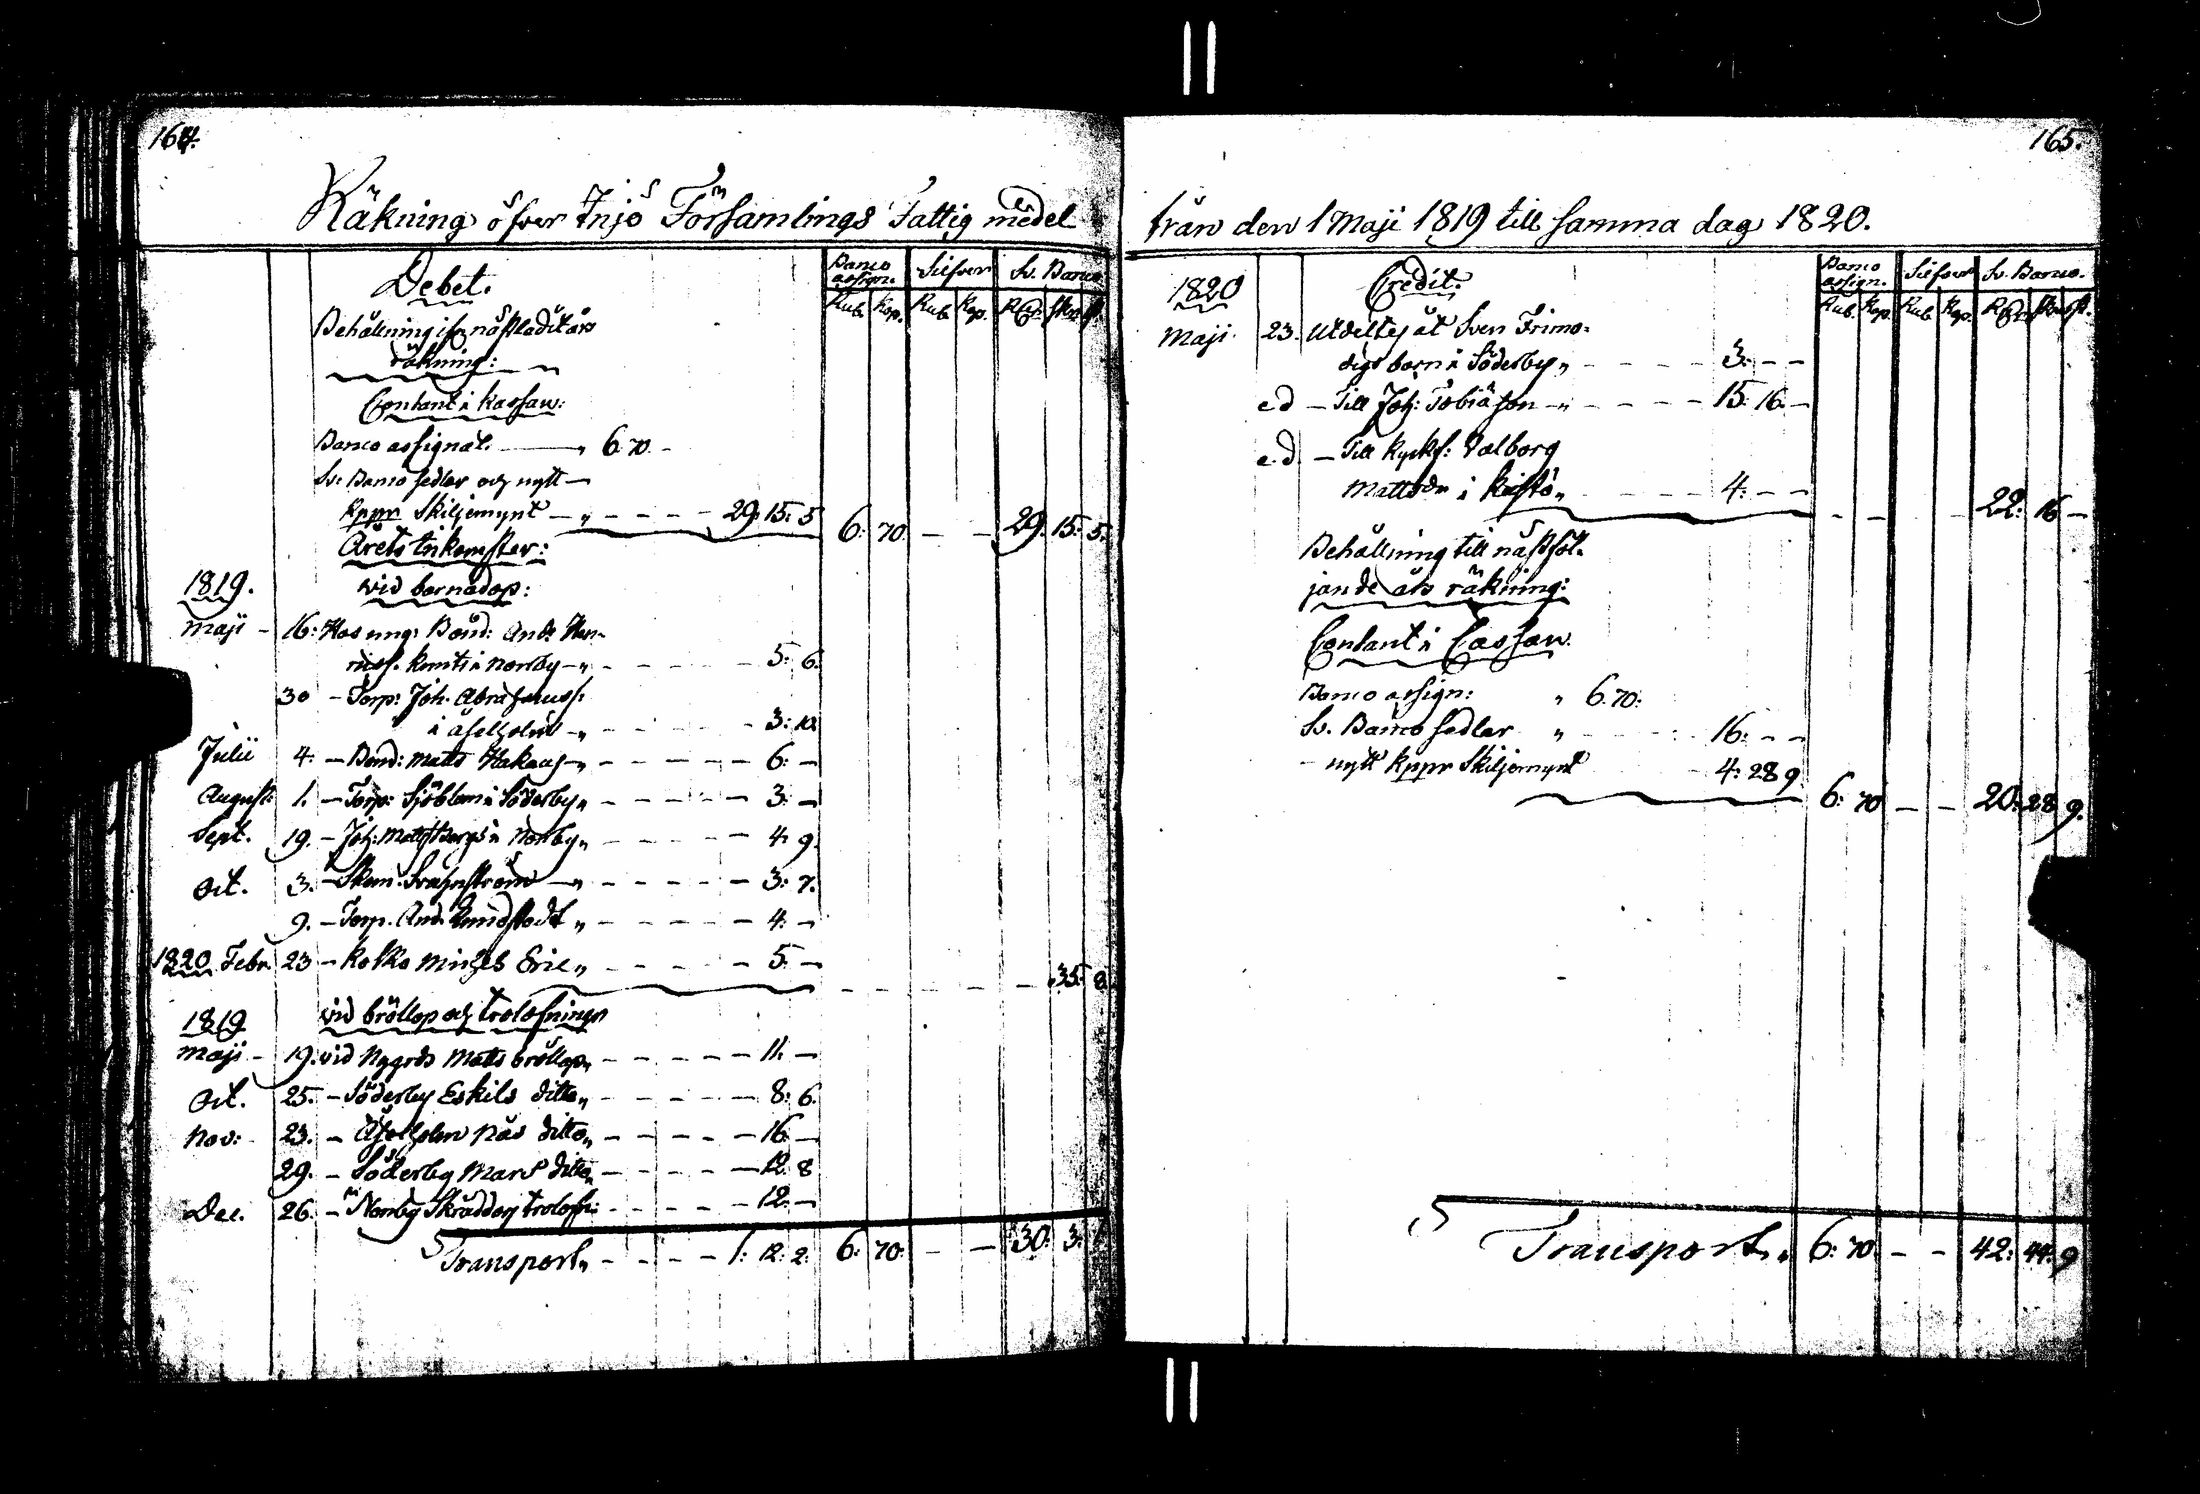 164.
Räkning öfver Injö Församlings Fattig medel
Debet.
Banco assign. Silfver Sv. Banco
Rub. Kop. Rub. Kop. Rdr Sk. st.
Behållning ifr. nästledit års
räkning:
Contant i Kassan:
Banco assignat. — " 6. 70. -
Sv. Banco sedlar och nytt —
Kppr Skiljemynt — " - - - - 29. 15. 5 6: 70. — — 29. 15. 5.
Årets Inkomster:
vid barnadop:
1819.
Maji - 16: Hos ung: Bond: And: Hen-
ricss. Knuts i Norrby — " - - - - 5: 6.
30 - Torp: Joh. Abrahamss:
i Åfelholm — " - - - - 3: 10.
Julii 4: - Bond: Matts Hakans — " - - - - 6: -
August: 1. - Torp: Sjöblom i Söderby " - - - - 3: -
Sept. 19. - Joh: Matts Bergs i Norrby " - - - - 4. 9.
Oct. 3. - Skom. — " - - - - 3: 7.
9. - Torp. And. " - - - - 4: -
1820 Febr 23 - Kolko Michels Eric " - - - - 5: - 35. 8.
vid bröllop och trolofningr
1819
Maji - 19. vid Nygrds Matts bröllop " - - - - 11. -
Oct. 25. - Söderby Eskils ditto " - - - - 8: 6.
Nov: - 23. - Åfelholm Näs ditto " - - - - 16. -
29. - Söderby Mars ditto - - - - 12. 8
Dec. 26. - Norrby Skräddars trolofn: - - - - 12. -
Transport " - - - - 1: 12. 2. 6: 70. — — 30. 3. 1
165.
från den 1 Maji 1819 till samma dag 1820.
Credit.
Banco assign. Silfver Sv. Banco.
Rub. Kop. Rub. Kop. Rdr Sk. st.
1820
Maji. 23. Utdeltes åt Sven Frimo-
digs barn i Söderby " - - - - 3: - -
e.d - Till Joh: Tobiasson - " - - - - 15. 16. -
e.d. - Till Kyrkf: Valborg
Mattsdr i " - - - - 4: - - 22: 16 -
Behållning till nästföl-
jande års räkning:
Contant i Cassan.
Banco assign: " 6. 70:
Sv. Banco sedlar " - - - 16: - -
- nytt Kppr Skiljemynt - 4: 28 9. 6: 70 — — 20: 28 9.
Transport " 6: 70. - - 42: 44: 9